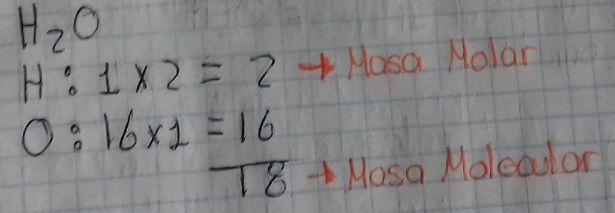 H₂O
H: 1 x 2 = 2 → Masa Molar
O: 16 x 1 = 16
18 → Masa Moleculor